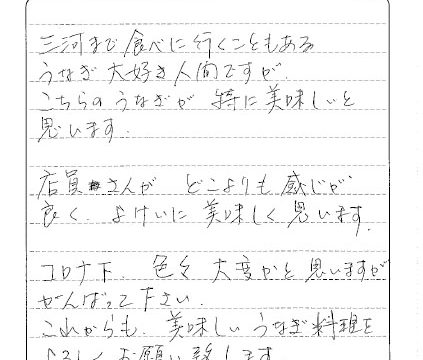 三河まで食べに行くこともある
うなぎ大好き人間ですが、
こちらのうなぎが 特に美味しいと
思います.
店員さんが どこよりも感じが
良く、よけいに美味しく思います.
コロナ下、色々大変かと思いますが
がんばって下さい.
これからも、美味しいうなぎ料理を
よろしくお願い致します